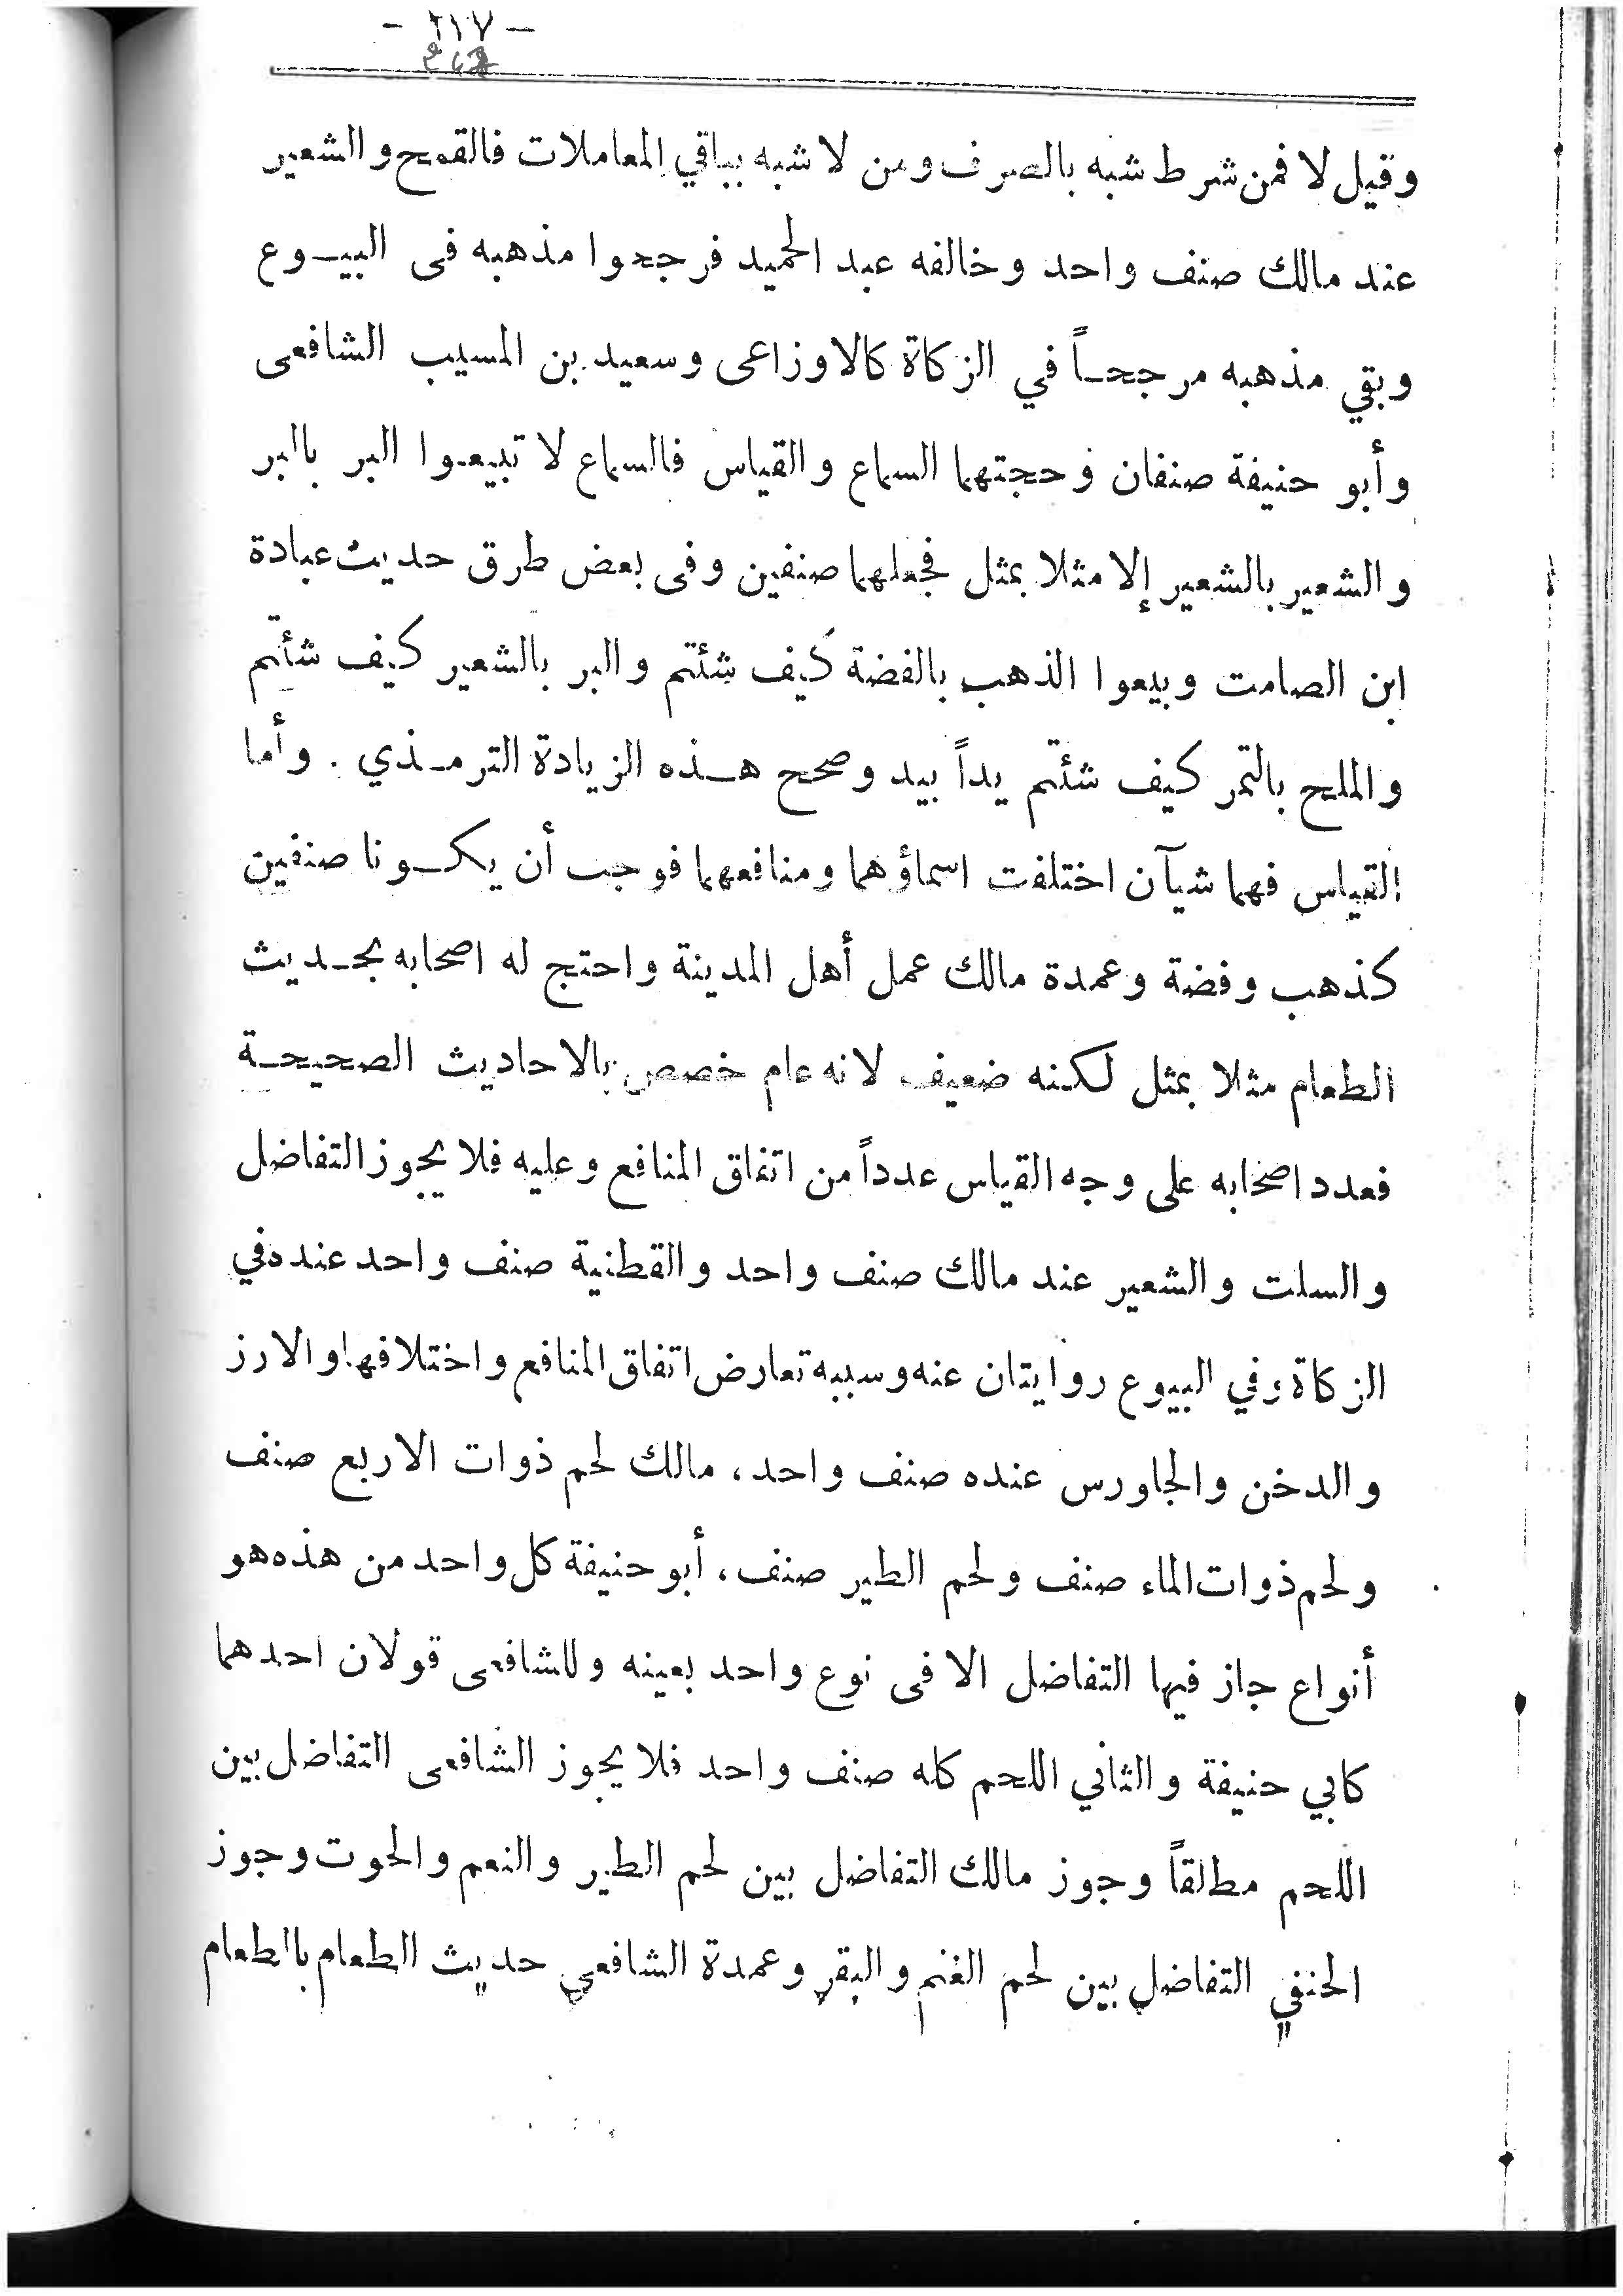 - ٢١٧ -
وقيل لا فمن شرط شبه بالصرف ومن لا شبه بباقي المعاملات فالقمح والشعير
عند مالك صنف واحد وخالفه عبد الحميد فرجحوا مذهبه فى البيــوع
وبقي مذهبه مرجحـاً في الزكاة كالاوزاعى وسعيد بن المسيب الشافعى
وأبو حنيفة صنفان وحجتهما السماع والقياس فالسماع لا تبيعوا البر بالبر
والشعير بالشعير إلا مثلا بمثل فجعلهما صنفين وفى بعض طرق حديث عبادة
ابن الصامت وبيعوا الذهب بالفضة كيف شئتم والبر بالشعير كيف شئتم
والملح بالتمر كيف شئتم يداً بيد وصحح هـذه الزيادة الترمـذي . وأما
القياس فهما شيآن اختلفت اسماؤهما ومنافعهما فوجب أن يكـونا صنفين
كذهب وفضة وعمدة مالك عمل أهل المدينة واحتج له اصحابه بحـديث
الطعام مثلا بمثل لكنه ضعيف لانه عام خصص بالاحاديث الصحيحـة
فعدد اصحابه على وجه القياس عدداً من اتفاق المنافع وعليه فلا يجوز التفاضل
والسلت والشعير عند مالك صنف واحد والقطنية صنف واحد عنده في
الزكاة وفي البيوع روايتان عنه وسببه تعارض اتفاق المنافع واختلافها والارز
والدخن والجاورس عنده صنف واحد، مالك لحم ذوات الاربع صنف
ولحم ذوات الماء صنف ولحم الطير صنف، أبو حنيفة كل واحد من هذه هو
أنواع جاز فيها التفاضل الا فى نوع واحد بعينه وللشافعى قولان احدهما
كابي حنيفة والثاني اللحم كله صنف واحد فلا يجوز الشافعى التفاضل بين
اللحم مطلقاً وجوز مالك التفاضل بين لحم الطير والنعم والحوت وجوز
الحنفي التفاضل بين لحم الغنم والبقر وعمدة الشافعي حديث الطعام بالطعام